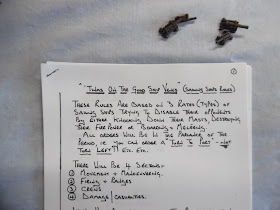 "'Twas On The Good Ship Venus" (Sailing Ships Rules)
These Rules Are Based on 3 Rates (Types) of
Sailing Ships Trying To Disable Their Opponents
By Either Knocking Down Their Masts, Destroying
Their Fire Power or Boarding + Meleeing.
All orders Will Be In The Parlance of The
Period, ie You Can order A Turn To Port - Not
Turn Left!! Etc. Etc.
There Will Be 4 Sections:-
① Movement + Manoeuvering.
② Firing + Ranges
③ Crews
④ Damage/Casualties.